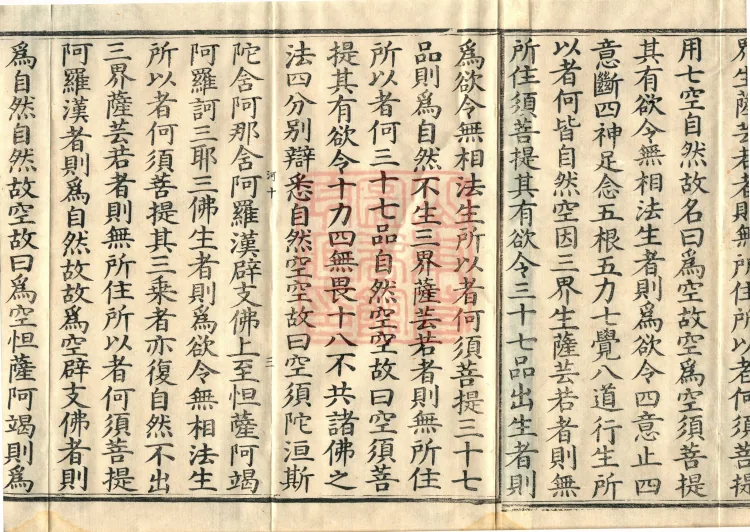 界生薩芸若者則無所住所以者何須菩提
用七空自然故名曰爲空故空爲空須菩提
其有欲令無相法生者則爲欲令四意止四
意斷四神足念五根五力七覺八道行生所
以者何皆自然空因三界生薩芸若者則無
所住須菩提其有欲令三十七品出生者則
爲欲令無相法生所以者何須菩提三十七
品則爲自然不生三界薩芸若者則無所住
所以者何三十七品自然空空故曰空須菩
提其有欲令十力四無畏十八不共諸佛之
法四分別辯悉自然空空故曰空須陀洹斯
河十 三
陀含阿那含阿羅漢辟支佛上至怛薩阿竭
阿羅訶三耶三佛生者則爲欲令無相法生
所以者何須菩提其三乘者亦復自然不出
三界薩芸若者則無所住所以者何須菩提
阿羅漢者則爲自然故故爲空辟支佛者則
爲自然自然故空故曰爲空怛薩阿竭則爲